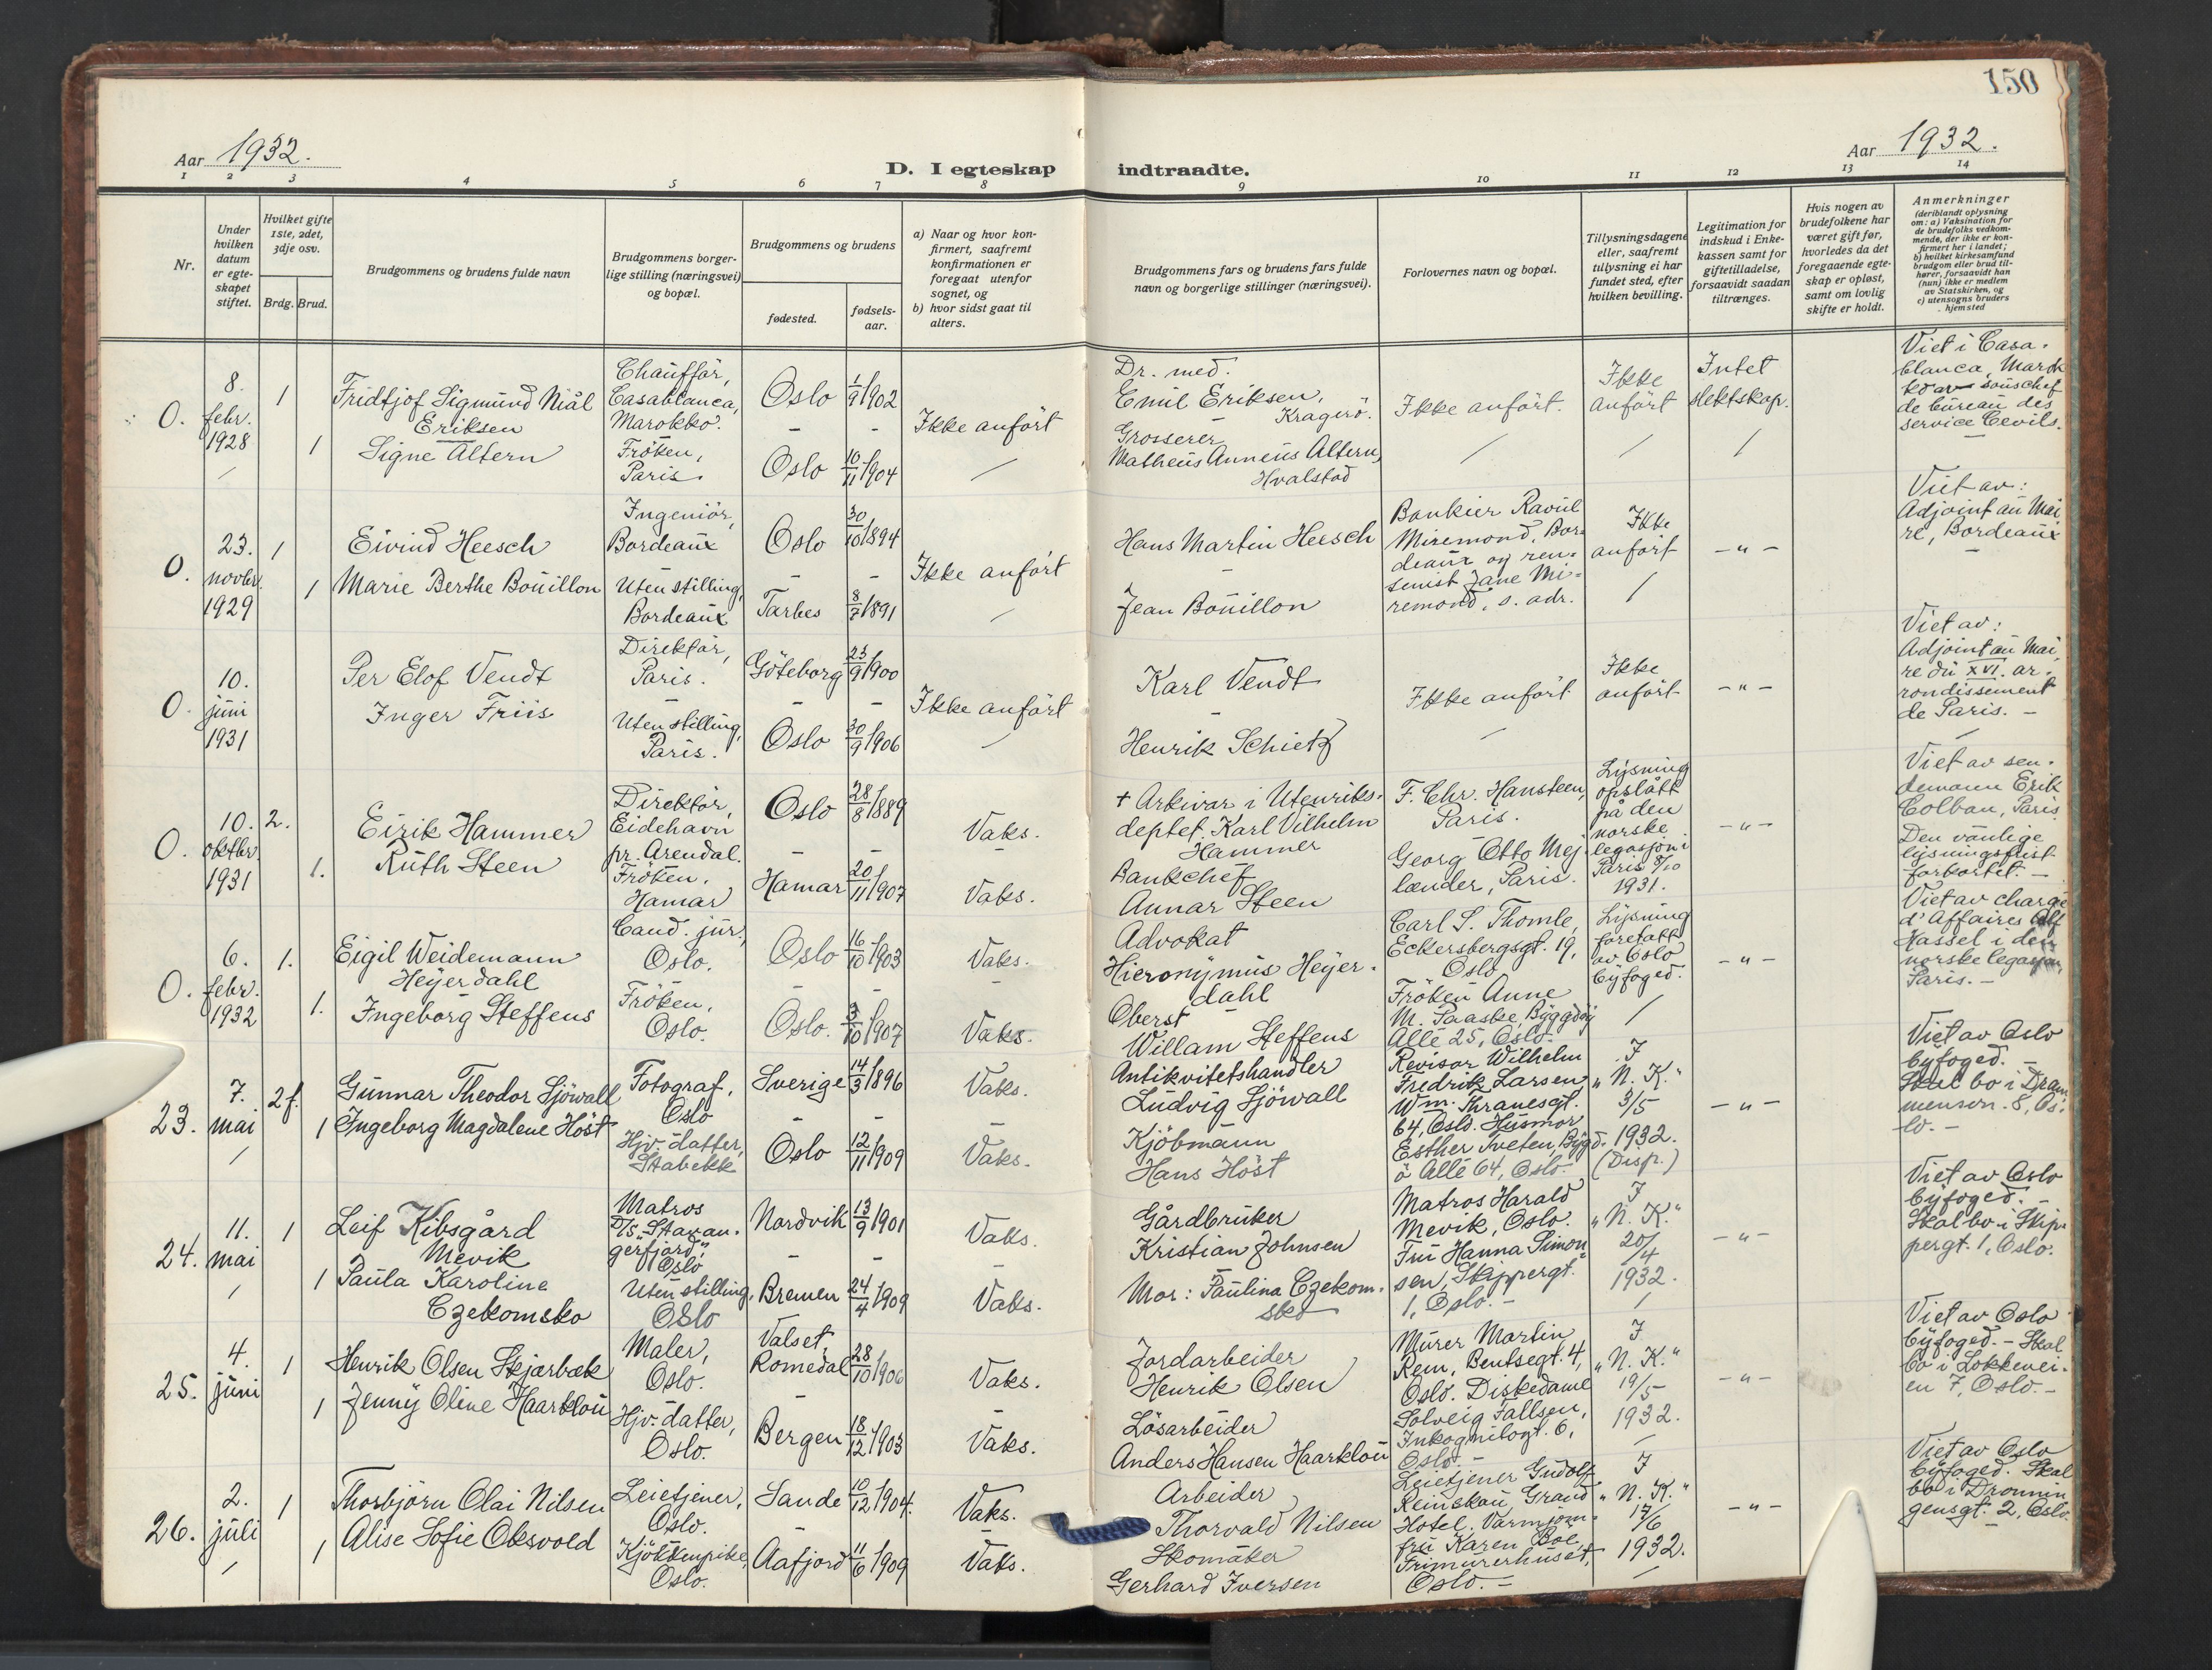 150
Aar 1932.
D. I egteskap indtraadte.
Aar 1932.
1 2 3 4 5 6 7 8 9 10 11 12 13 14
Nr.
Under hvilken datum er egte-skapet stiftet.
Hvilket gifte 1ste, 2det, 3dje osv.
Brdg. Brud.
Brudgommens og brudens fulde navn
Brudgommens borger-lige stilling (næringsvei) og bopæl.
Brudgommens og brudens
fødested.
fødsels-aar.
a) Naar og hvor kon-firmert, saafremt konfirmationen er foregaat utenfor sognet, og
b) hvor sidst gaat til alters.
Brudgommens fars og brudens fars fulde navn og borgerlige stillinger (næringsvei).
Forlovernes navn og bopæl.
Tillysningsdagene eller, saafremt tillysning ei har fundet sted, efter hvilken bevilling.
Legitimation for indskud i Enke-kassen samt for giftetilladelse, forsaavidt saadan tiltrænges.
Hvis nogen av brudefolkene har været gift før, hvorledes da det foregaaende egte-skap er opløst, samt om lovlig skifte er holdt.
Anmerkninger
(deriblandt oplysning om: a) Vaksination for de brudefolks vedkom-mende, der ikke er kon-firmert her i landet; b) hvilket kirkesamfund brudgom eller brud til-hører, forsaavidt han (hun) ikke er medlem av Statskirken, og c) utensogns bruders hjemsted
O.
8. febr. 1928
1
Fridtjof Sigmund Niål Eriksen
Chauffør, Casablanca, Marokko.
Oslo
1/9 1902
Ikke anført
Dr. med. Emil Eriksen, Kragerö.
Ikke anført.
Ikke anført
Intet slektskap.
Viet i Casa-blanca, Marok ko av souschef de bureau des service Cevils.
1
Signe Altern
Fröken, Paris.
Oslo
10/11 1904
Grosserer Matheus Anneus Altern, Hvalstad
O.
23. novbr. 1929
1
Eivind Heesch
Ingeniör, Bordeaux
Oslo
30/10 1894
Ikke anfört
Hans Martin Heesch
Bankier Raoul Miremond, Bor-deaux og ren-tenist Jane Mi-remond, s. adr.
Ikke anfört
- " -
Viet av: Adjoint au Mai re, Bordeaux
1
Marie Berthe Bouillon
Uten stilling, Bordeaux
Tarbes
8/7 1891
Jean Bouillon
O.
10. juni 1931
Per Elof Vendt
Direktör, Paris.
Göteborg
23/9 1900
Ikke anfört
Karl Vendt
Ikke anfört
Ikke anfört
- " -
Viet av: Adjoint au Mai re du XVI. ar-rondissement de Paris. -
Inger Friis
Uten stilling, Paris.
Oslo
30/9 1906
Henrik Schietz
O.
10. oktbr. 1931
2.
Eirik Hammer
Direktör, Eidehavn pr. Arendal.
Oslo
28/8 1889
Vaks.
+ Arkivar i Utenriks-deptet. Karl Vilhelm Hammer
F. Chr. Hansteen, Paris.
Georg Otto Mej lænder, Paris.
Lysning opslått på den norske legasjon i Paris 8/10 1931.
- " -
Viet av sen-demann Erik Colban, Paris. Den vanlige lysningsfrist forkortet. -
1.
Ruth Steen
Fröken, Hamar
Hamar
20/11 1907
Vaks.
Bankchef Annar Steen
O.
6. febr. 1932
1.
Eigil Weidemann Heyerdahl
Cand. jur., Oslo.
Oslo
16/10 1903
Vaks.
Advokat Hieronymus Heyer-dahl
Carl S. Thomle, Eckersbergsgt. 19, Oslo
Fröken Anne M. Paaske, Byggdöy Allé 25, Oslo.
Lysning foretatt av Oslo byfoged.
- " -
Viet av chargé d'Affaires Alf Hassel i den norske legasjon, Paris. -
1.
Ingeborg Steffens
Fröken, Oslo.
Oslo.
3/10 1907
Vaks.
Oberst Willam Steffens
23.
7. mai
2 f.
Gunnar Theodor Sjöwall
Fotograf, Oslo
Sverige
14/3 1896
Vaks.
Antikvitetshandler Ludvig Sjöwall
Revisor Wilhelm Fredrik Larsen, Wm. Thranesgt. 64, Oslo. Husmor Esther Tveten, Bygd-ö Allé 64, Oslo.
I „N. K." 3/5 1932. (Disp.)
- " -
Viet av Oslo byfoged. - Skal bo i Dram mensvn. 8, Os-lo. -
1
Ingeborg Magdalene Höst
Hjv. datter, Stabekk
Oslo
12/11 1909
Vaks.
Kjöbmann Hans Höst
24.
11. mai
1
Leif Kibsgård Mevik
Matros D/S. „Stavan-gerfjord", Oslo
Nordvik
13/9 1901
Vaks.
Gårdbruker Kristian Johnsen
Matros Harald Mevik, Oslo. Fru Hanna Simon-sen, Skippergt. 1, Oslo. -
I „N. K." 20/4 1932.
- " -
Viet av Oslo byfoged. - Skal bo i Skip-pergt. 1, Oslo.
1
Paula Karoline Czekomsko
Uten stilling, Oslo
Bremen
24/4 1909
Vaks.
Mor: Paulina Czekom-sko
25.
4. juni
1
Henrik Olsen Skjærbæk
Maler, Oslo.
Valset, Romedal
28/10 1906
Vaks.
Jordarbeider Henrik Olsen
Murer Martin Rem, Bentsegt. 4, Oslo. Diskedame Solveig Fallsen, Inkognitogt. 6, Oslo. -
I „N. K." 19/5 1932.
- " -
Viet av Oslo byfoged. - Skal bo i Lökkevei-en 7, Oslo. -
1
Jenny Oline Haarklou
Hjv. datter, Oslo.
Bergen
18/12 1903
Vaks.
Lösarbeider Anders Hansen Haarklou
26.
2. juli
1
Thorbjörn Olai Nilsen
Leietjener, Oslo.
Sande
10/12 1904.
Vaks.
Arbeider Thorvald Nilsen
Leietjener Gudolf Reinskou, Grand Hotel. Varmjom-fru Karen Boe, Frimurerhuset, Oslo. -
I „N. K." 17/6 1932.
- " -
Viet av Oslo byfoged. Skal bo i Dronnin gensgt. 2, Oslo.
1
Alise Sofie Oksvold
Kjökkenpike, Oslo.
Aafjord
11/6 1909
Vaks.
Skomaker Gerhard Iversen